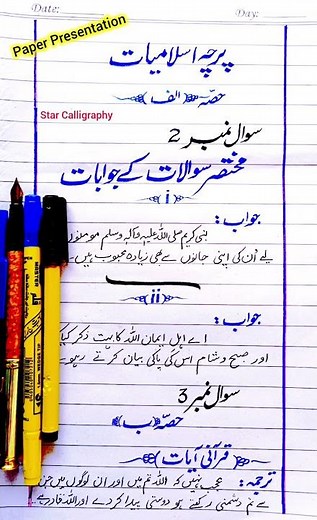 Date:
Day:
Paper Presentation
پرچہ اسلامیات
حصّہ (الف)
Star Calligraphy
سوال نمبر 2
مختصر سوالات کے جوابات
i
جواب:
نبی کریم صلی اللہ علیہ وآلہ وسلم مومنوں
لیے اُن کی اپنی جانوں سے بھی زیادہ محبوب ہیں
ii
جواب:
اے اہل ایمان اللہ کا بہت ذکر کیا
اور صبح و شام اس کی پاکی بیان کرتے رہو
سوال نمبر 3
حصّہ (ب)
(قرآنی آیات)
ترجمہ: عجب نہیں کہ اللہ تم میں اور ان لوگوں میں جن
سے تم دشمنی رکھتے ہو دوستی پیدا کر دے اور اللہ قادر ہے